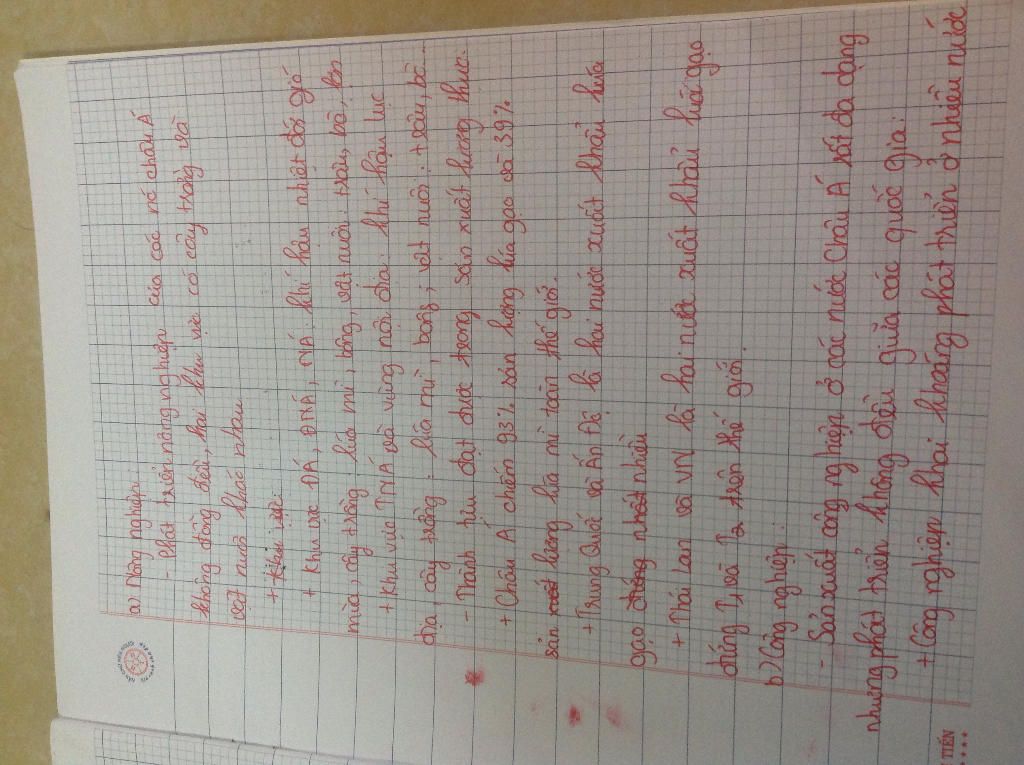 a) Nông nghiệp.
- Phát triển nông nghiệp của các nớ châu Á
không đồng đều, hai khu vực có cây trồng và
vật nuôi khác nhau.
+ Khu vực:
+ Khu vực ĐÁ, ĐNÁ, NÁ: khí hậu nhiệt đới gió
mùa, cây trồng: lúa mì, bông, vật nuôi: trâu, bò, lợn
+ Khu vực TNÁ và vùng nội địa: khí hậu lục
địa, cây trồng: lúa mì, bông; vật nuôi: trâu, bò...
- Thành tựu đạt được trong sản xuất lương thực.
+ Châu Á chiếm 93% sản lượng lúa gạo và 39%
sản lượng lúa mì toàn thế giới.
+ Trung Quốc và Ấn Độ là hai nước xuất khẩu lúa
gạo nhiều
+ Thái Lan và VN là hai nước xuất khẩu lúa gạo
đứng T1 và T2 trên thế giới.
b) Công nghiệp.
- Sản xuất công nghiệp ở các nước Châu Á rất đa dạng
nhưng phát triển không đều giữa các quốc gia:
+ Công nghiệp khai khoáng phát triển ở nhiều nước
TIẾN